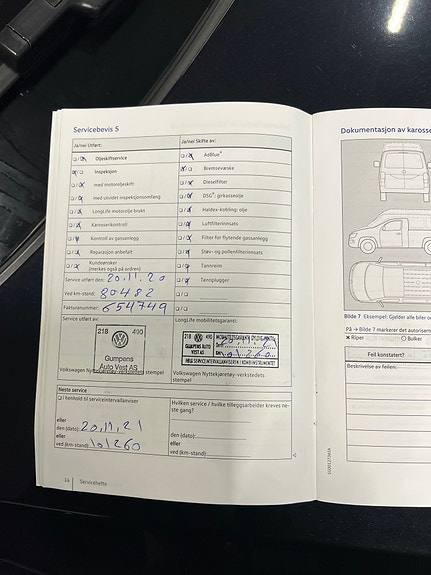 Servicebevis 5
Ja/nei Utført:
Ja/nei Skifte av:
Oljeskiftservice
AdBlue®
Inspeksjon
Bremsevæske
med motoroljeskift
Dieselfilter
med utvidet inspeksjonsomfang
DSG®: girkasseolje
LongLife motorolje brukt
Haldex-kobling: olje
Karosserikontroll
Luftfilterinnsats
Kontroll av gassanlegg
Filter for flytende gassanlegg
Reparasjon anbefalt
Støv- og pollenfilterinnsats
Kundeønsker
(merkes også på ordren)
Tannreim
Tennplugger
Service utført den: 20,11,20
Ved km-stand: 80482
Fakturanummer: 654749
Service utført av:
LongLife mobilitetsgaranti:
218 490
Gumpens
Auto Vest AS
Volkswagen Nyttekjøretøy-verkstedets
stempel
218 490
GUMPENS AUTO
VEST AS
Volkswagen Nyttekjøretøy-verkstedets
stempel
Neste service
i henhold til serviceintervallanviser
eller
den (dato): 20,11,21
eller
ved (km-stand): 101260
Hvilken service / hvilke tilleggsarbeider kreves ne-
ste gang?
den (dato):
eller
ved (km-stand):
14 Servicehefte
Dokumentasjon av karosse
Bilde 7 Eksempel: Gjelder alle biler
På → Bilde 7 markerer det autoriserte
Riper
Bulker
Feil konstatert?
Beskrivelse av feilen: